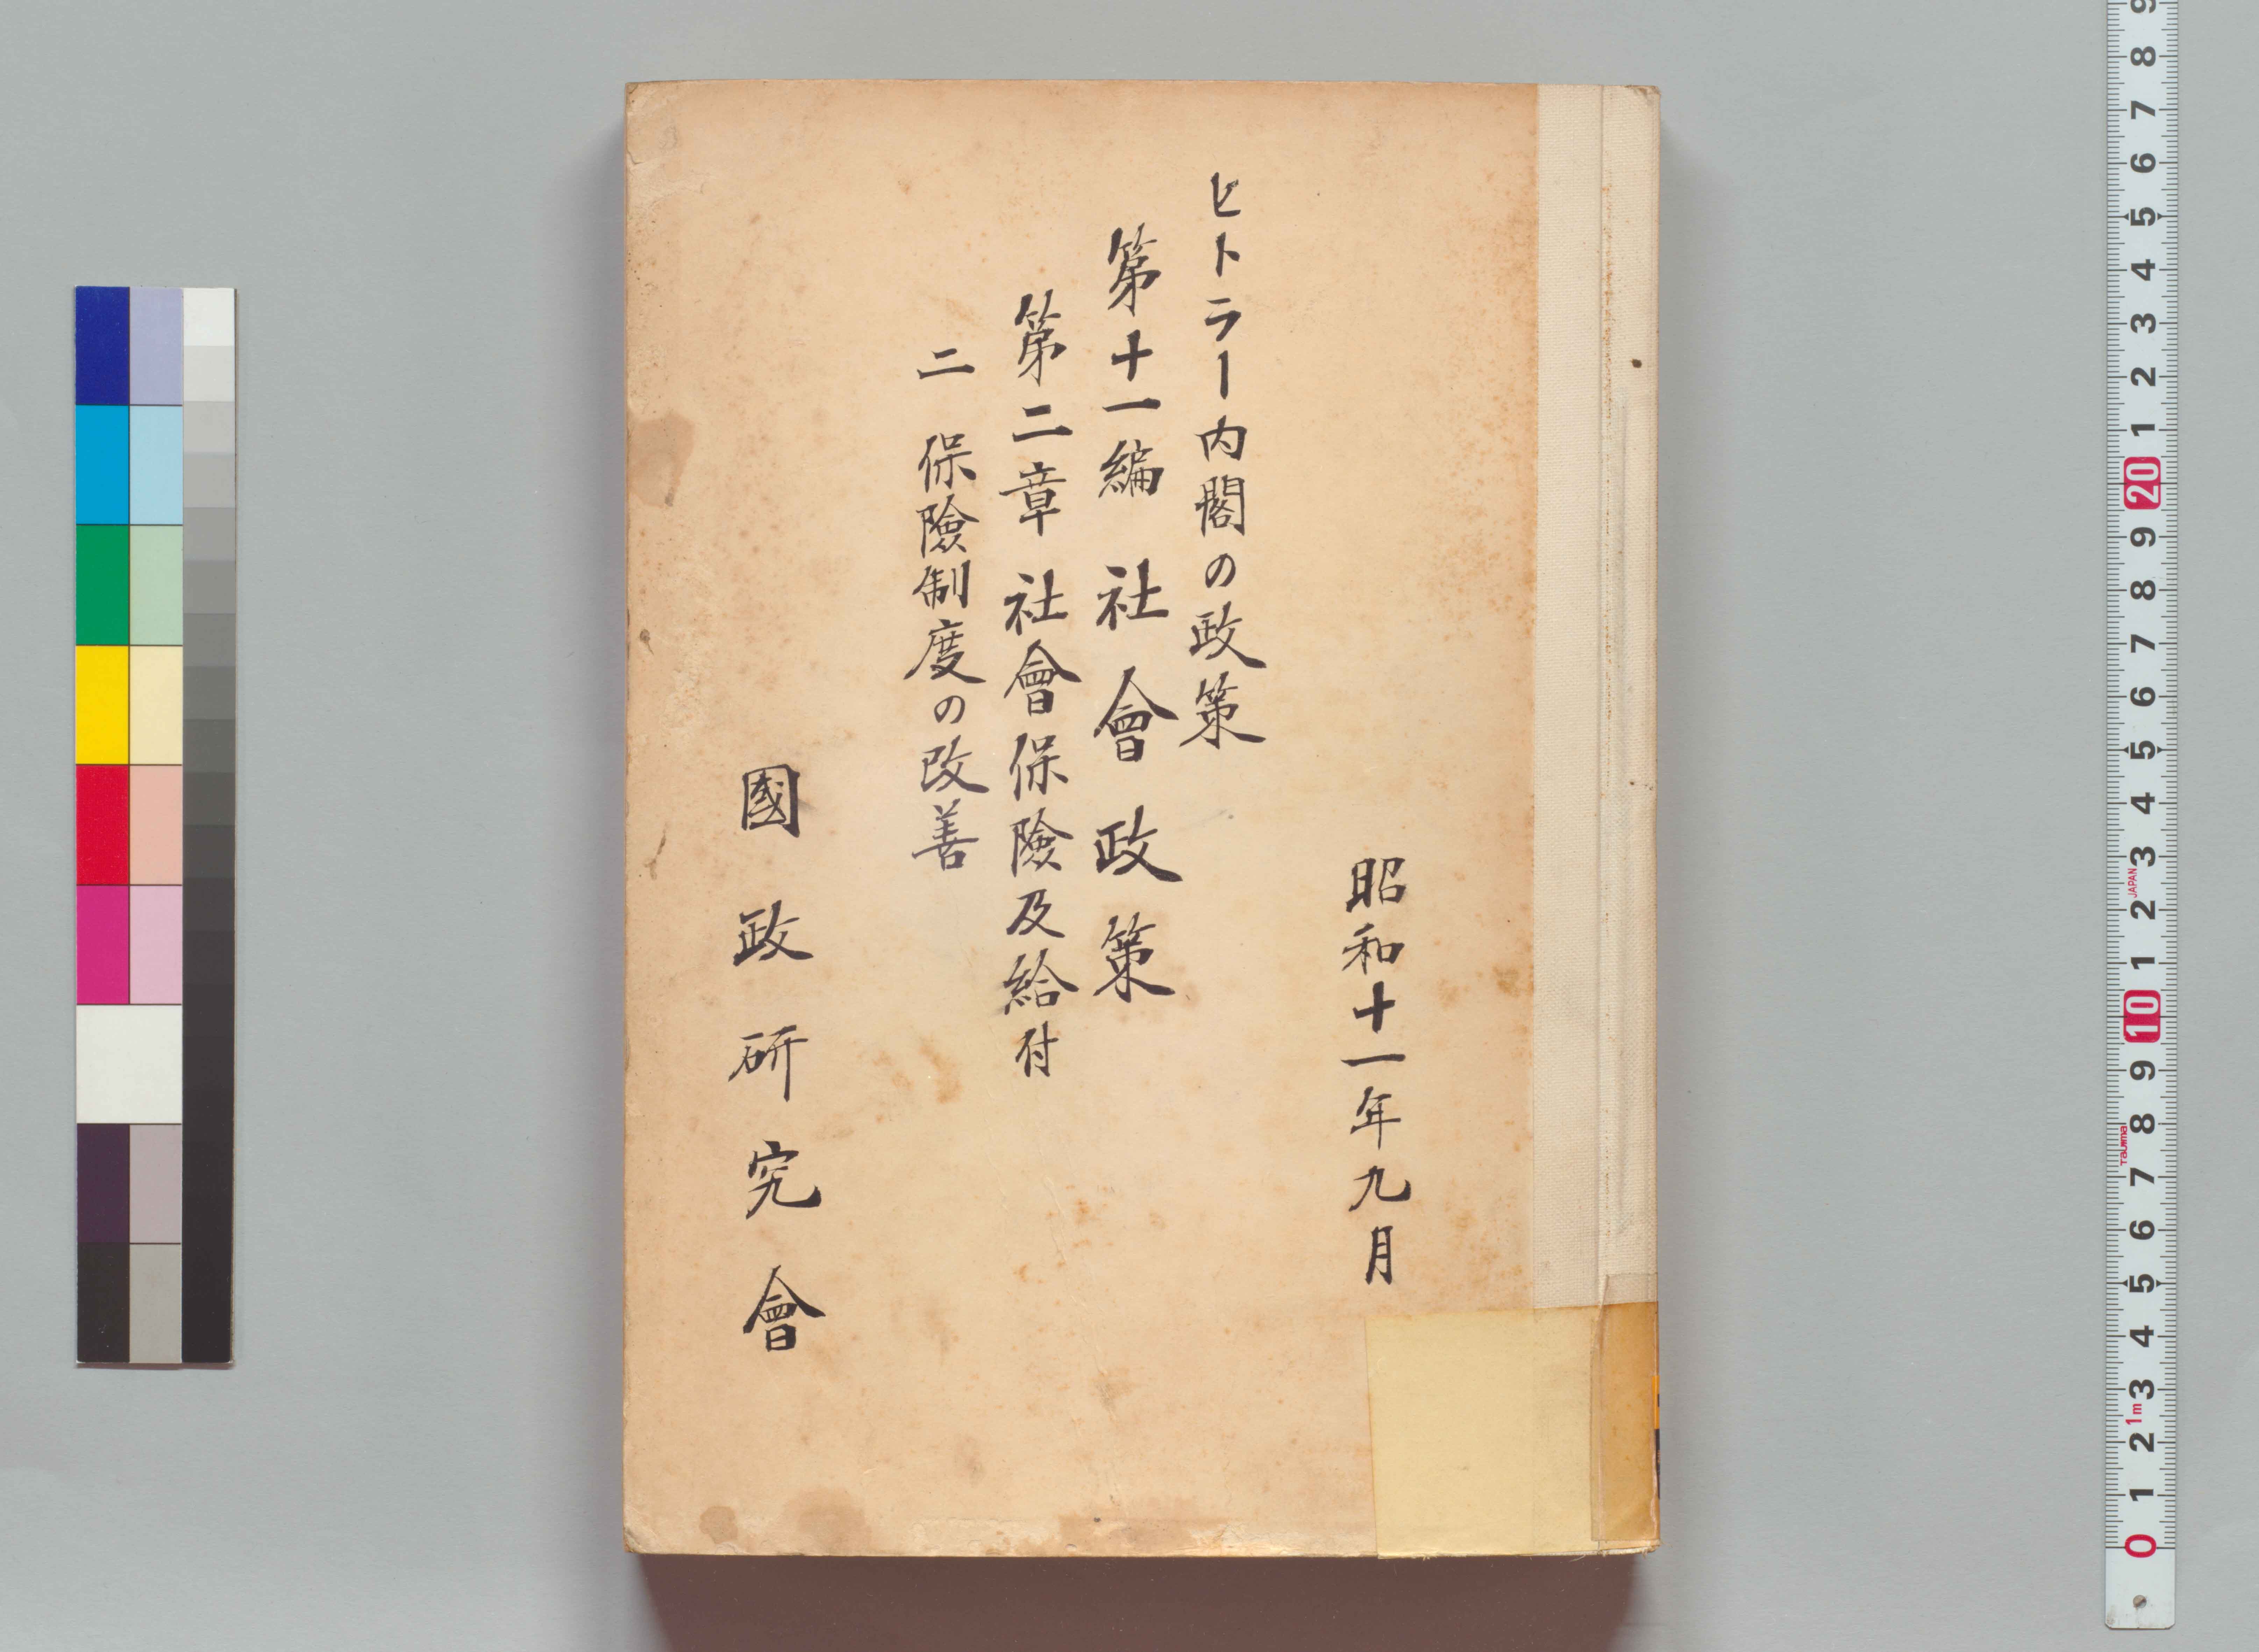 昭和十一年九月
ヒトラー内閣の政策
第十一編 社會政策
第二章 社會保險及給付
二 保險制度の改善
國政研究會
9
8
7
6
5
4
3
2
1
20
9
8
7
6
5
4
3
JAPAN
2
1
10
9
8
Tajima
7
6
5
4
3
1m
2
1
0